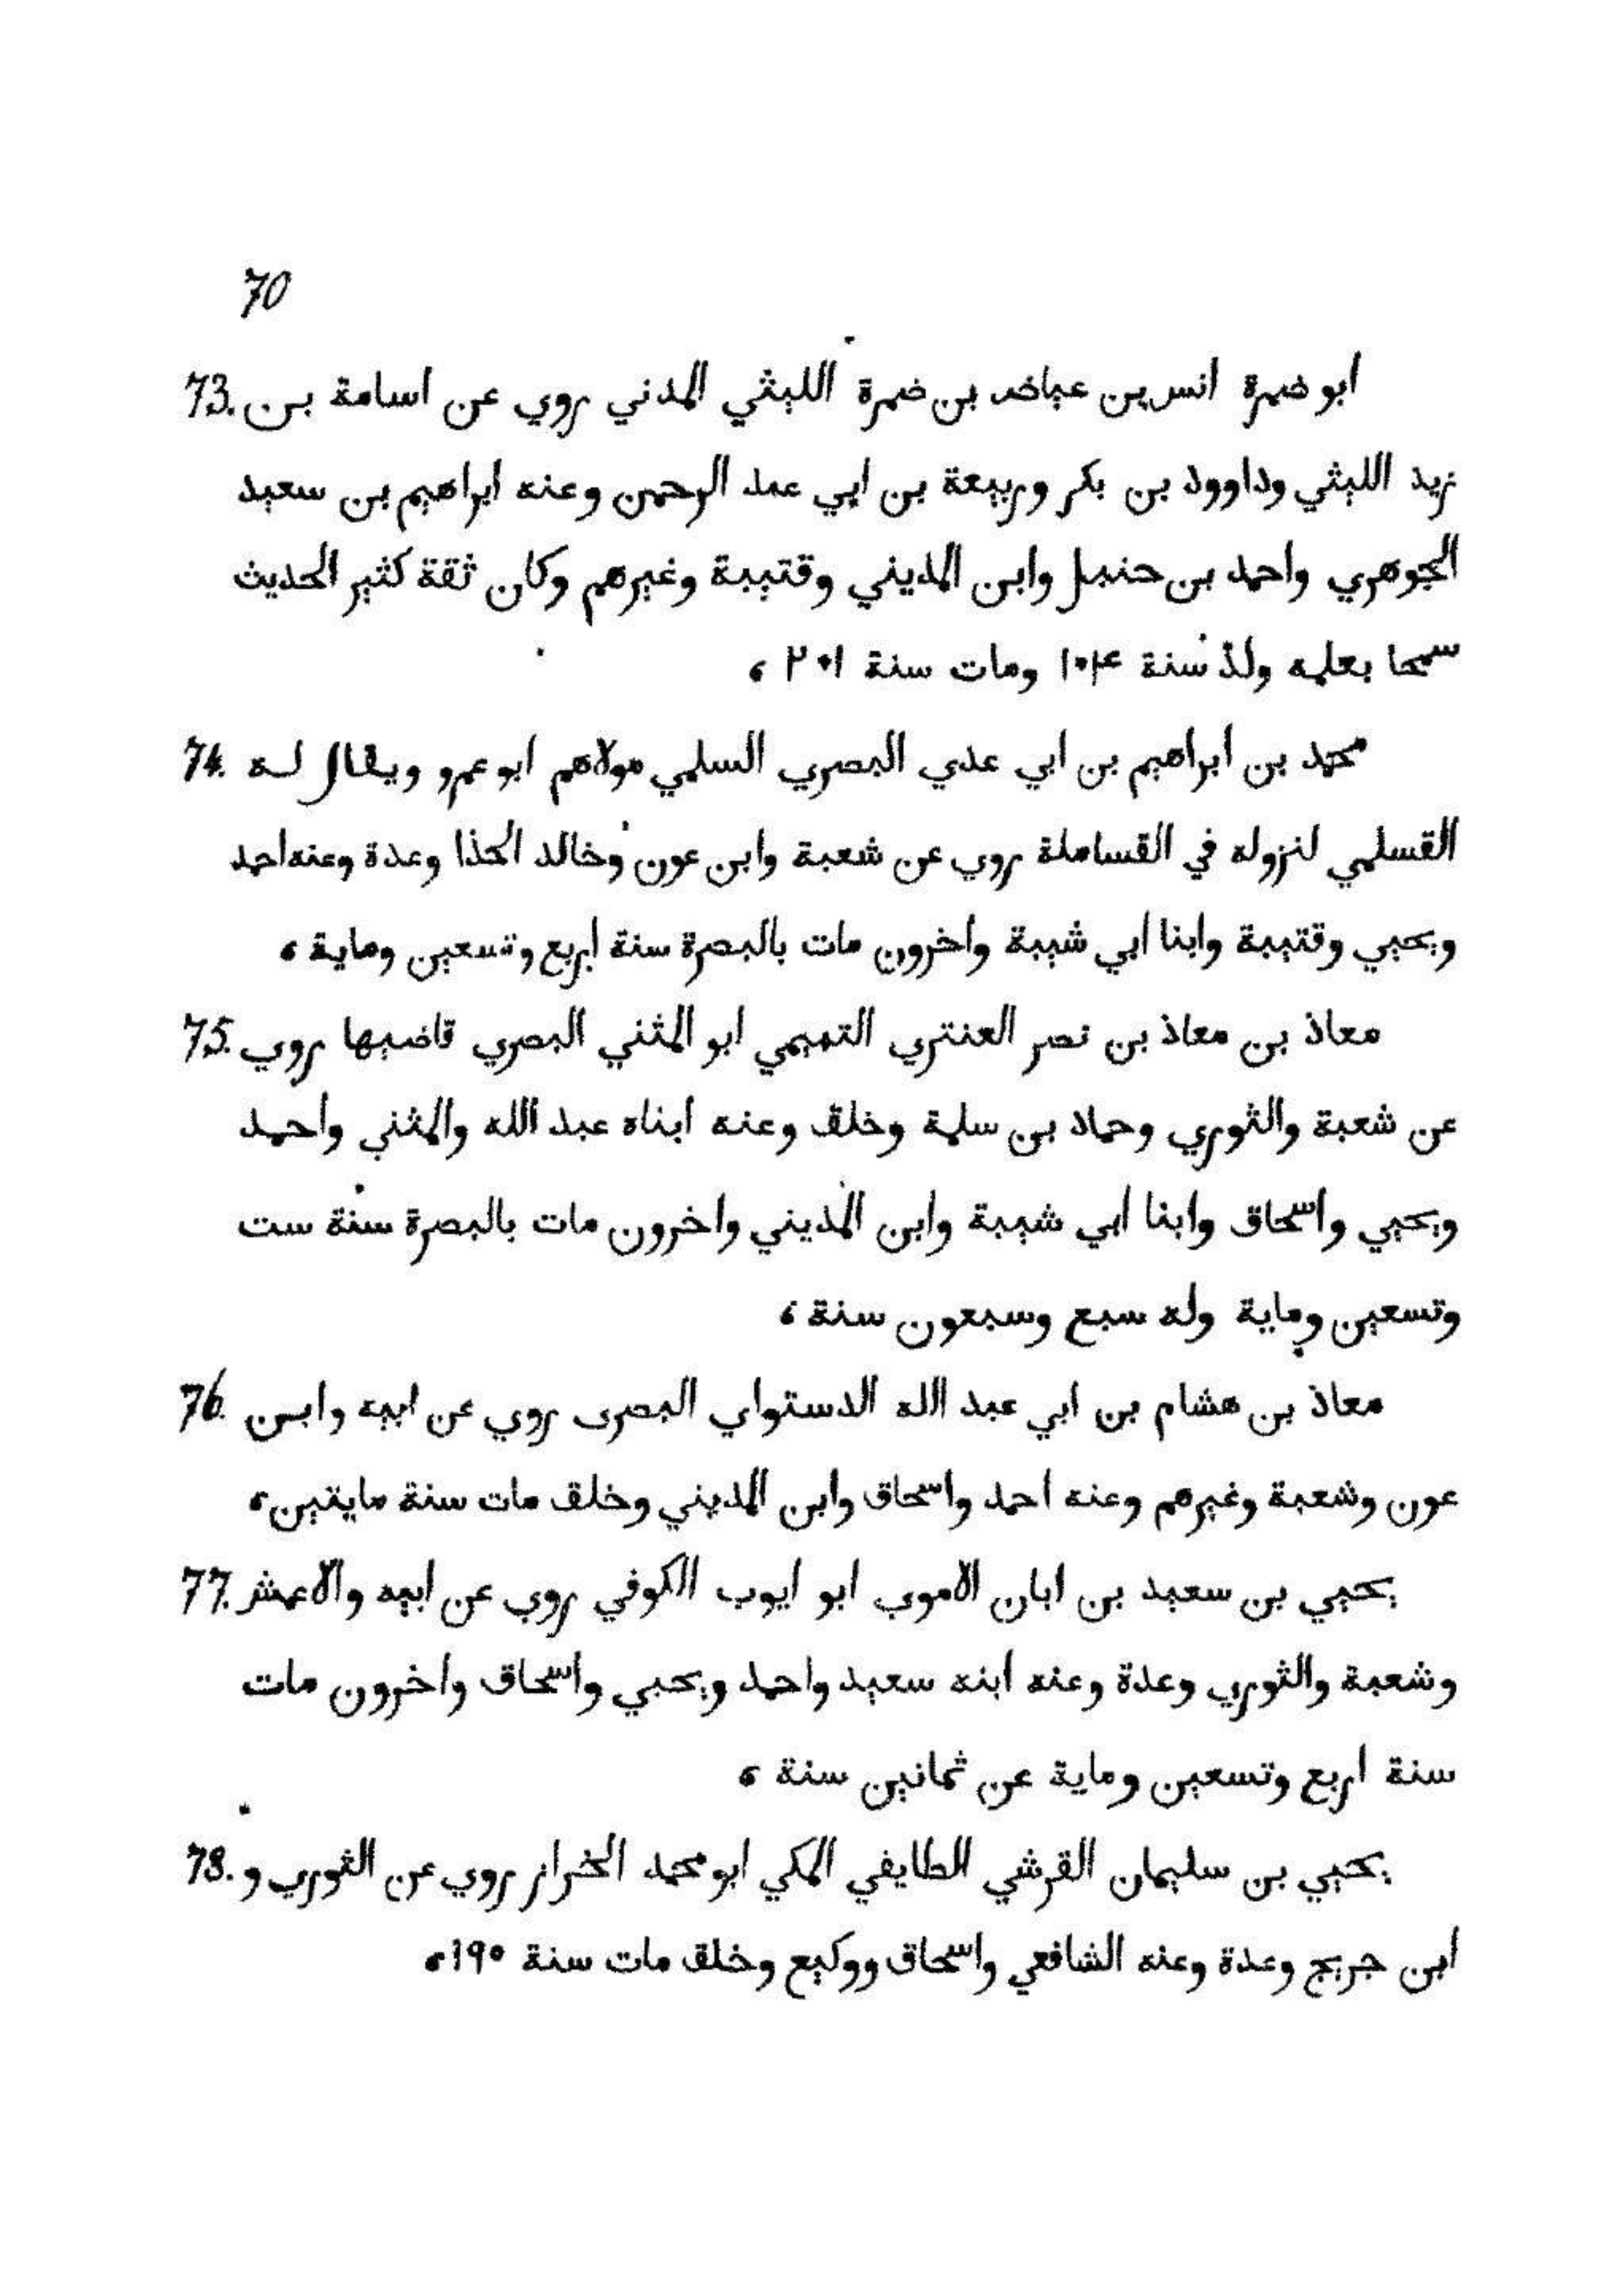 70
73. ابو ضمرة انس بن عياض بن ضمرة الليثي المدني روي عن اسامة بن
زيد الليثي وداوود بن بكر وربيعة بن ابي عبد الرحمن وعنه ابراهيم بن سعيد
الجوهري واحمد بن حنبل وابن المديني وقتيبة وغيرهم وكان ثقة كثير الحديث
سمحا بعلمه ولد سنة ١٠٤ ومات سنة ٢٠١ ،
74. محمد بن ابراهيم بن ابي عدي البصري السلمي مولاهم ابو عمرو ويقال له
القسلمي لنزوله في القساملة روي عن شعبة وابن عون وخالد الحذا وعدة وعنه احمد
ويحيي وقتيبة وابنا ابي شيبة واخرون مات بالبصرة سنة اربع وتسعين وماية ،
75. معاذ بن معاذ بن نصر العنتري التميمي ابو المثني البصري قاضيها روي
عن شعبة والثوري وحماد بن سلمة وخلق وعنه ابناه عبد الله والمثني واحمد
ويحيي واسحاق وابنا ابي شيبة وابن المديني واخرون مات بالبصرة سنة ست
وتسعين وماية وله سبع وسبعون سنة ،
76. معاذ بن هشام بن ابي عبد الله الدستواي البصرى روي عن ابيه وابن
عون وشعبة وغيرهم وعنه احمد واسحاق وابن المديني وخلق مات سنة مايتين ،
77. يحيي بن سعيد بن ابان الاموي ابو ايوب الكوفي روي عن ابيه والاعمش
وشعبة والثوري وعدة وعنه ابنه سعيد واحمد ويحيي واسحاق واخرون مات
سنة اربع وتسعين وماية عن ثمانين سنة ،
78. يحيي بن سليمان القرشي الطايفي المكي ابو محمد الخراز روي عن الثوري و
ابن جريج وعدة وعنه الشافعي واسحاق ووكيع وخلق مات سنة ١٩٠ ،